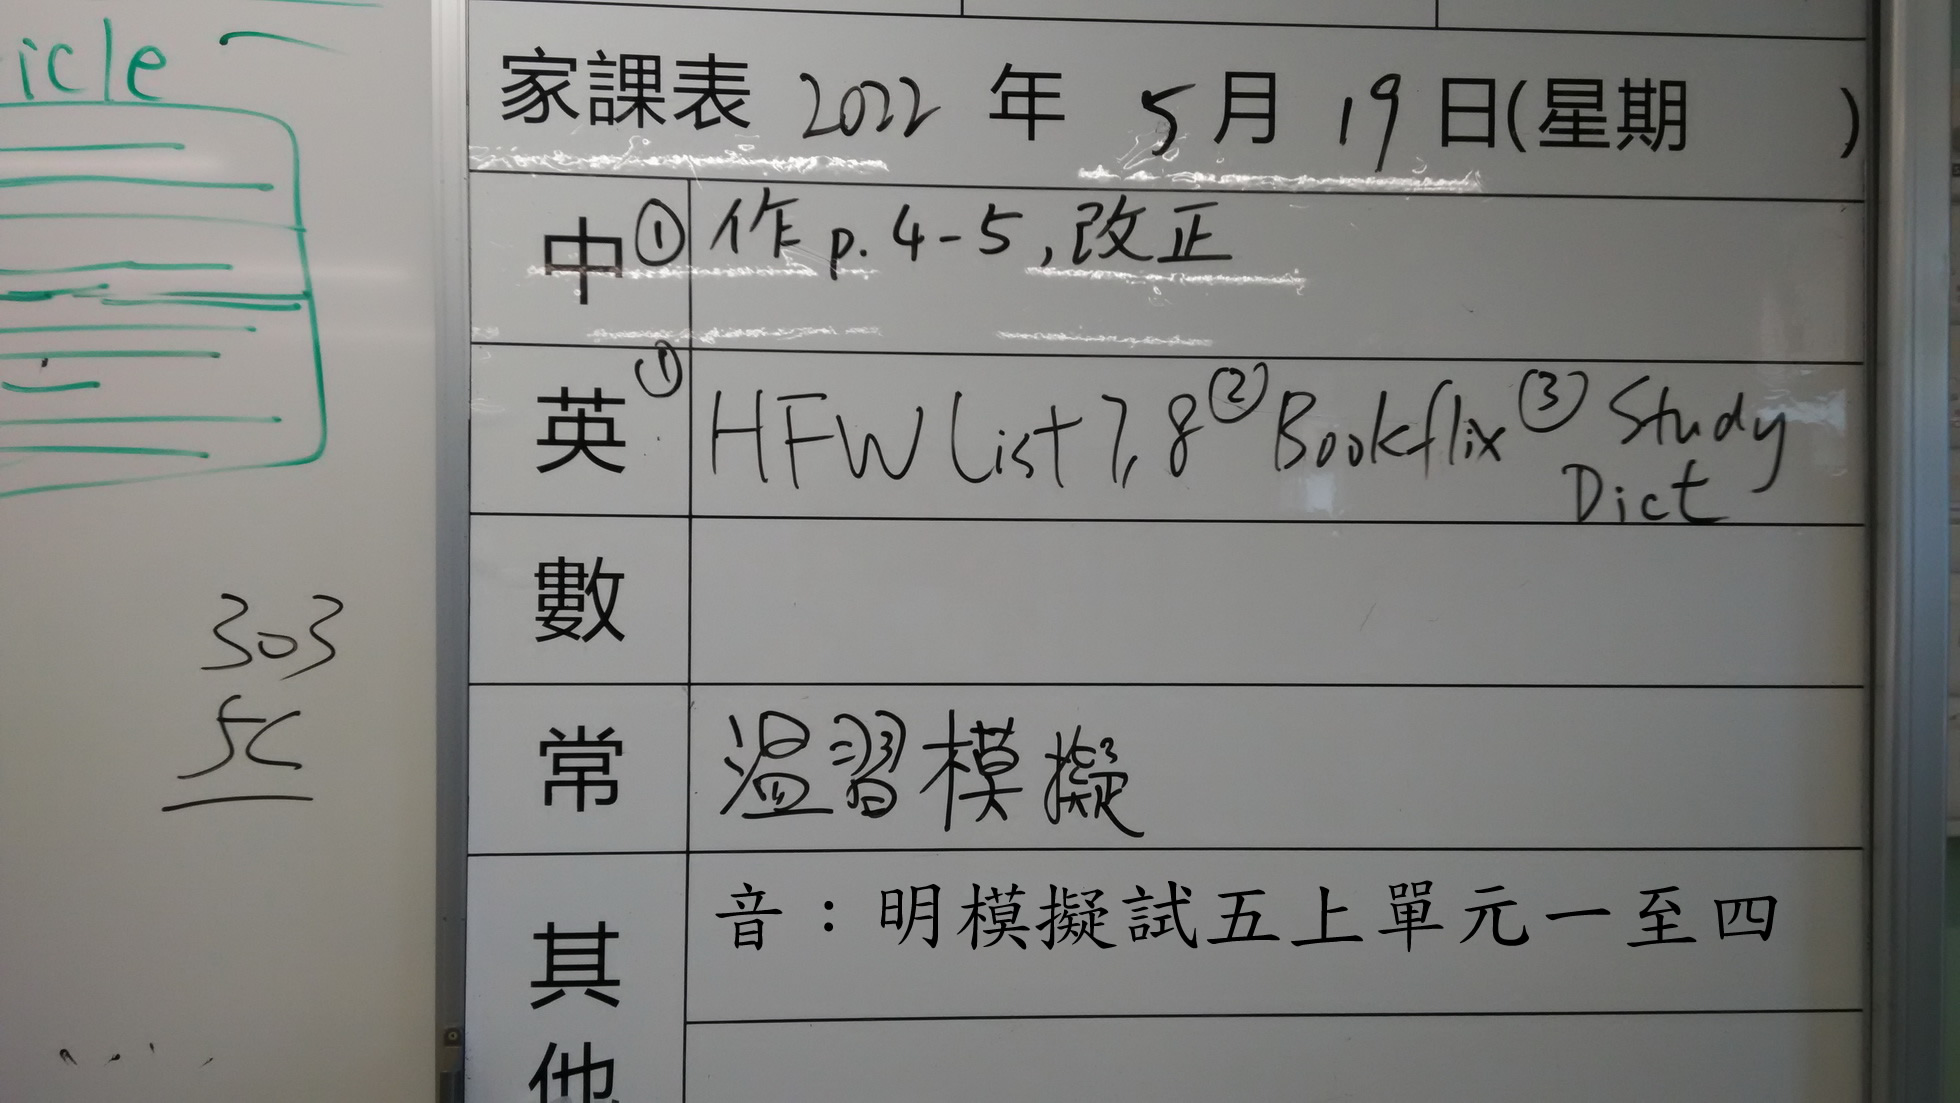 icle
家課表 2022 年 5 月 19 日(星期 )
中 ① 作 p. 4-5, 改正
英 ① HFW List 7, 8 ② Bookflix ③ Study
Dict
數
常 温習模擬
其他
音：明模擬試五上單元一至四
303
5C